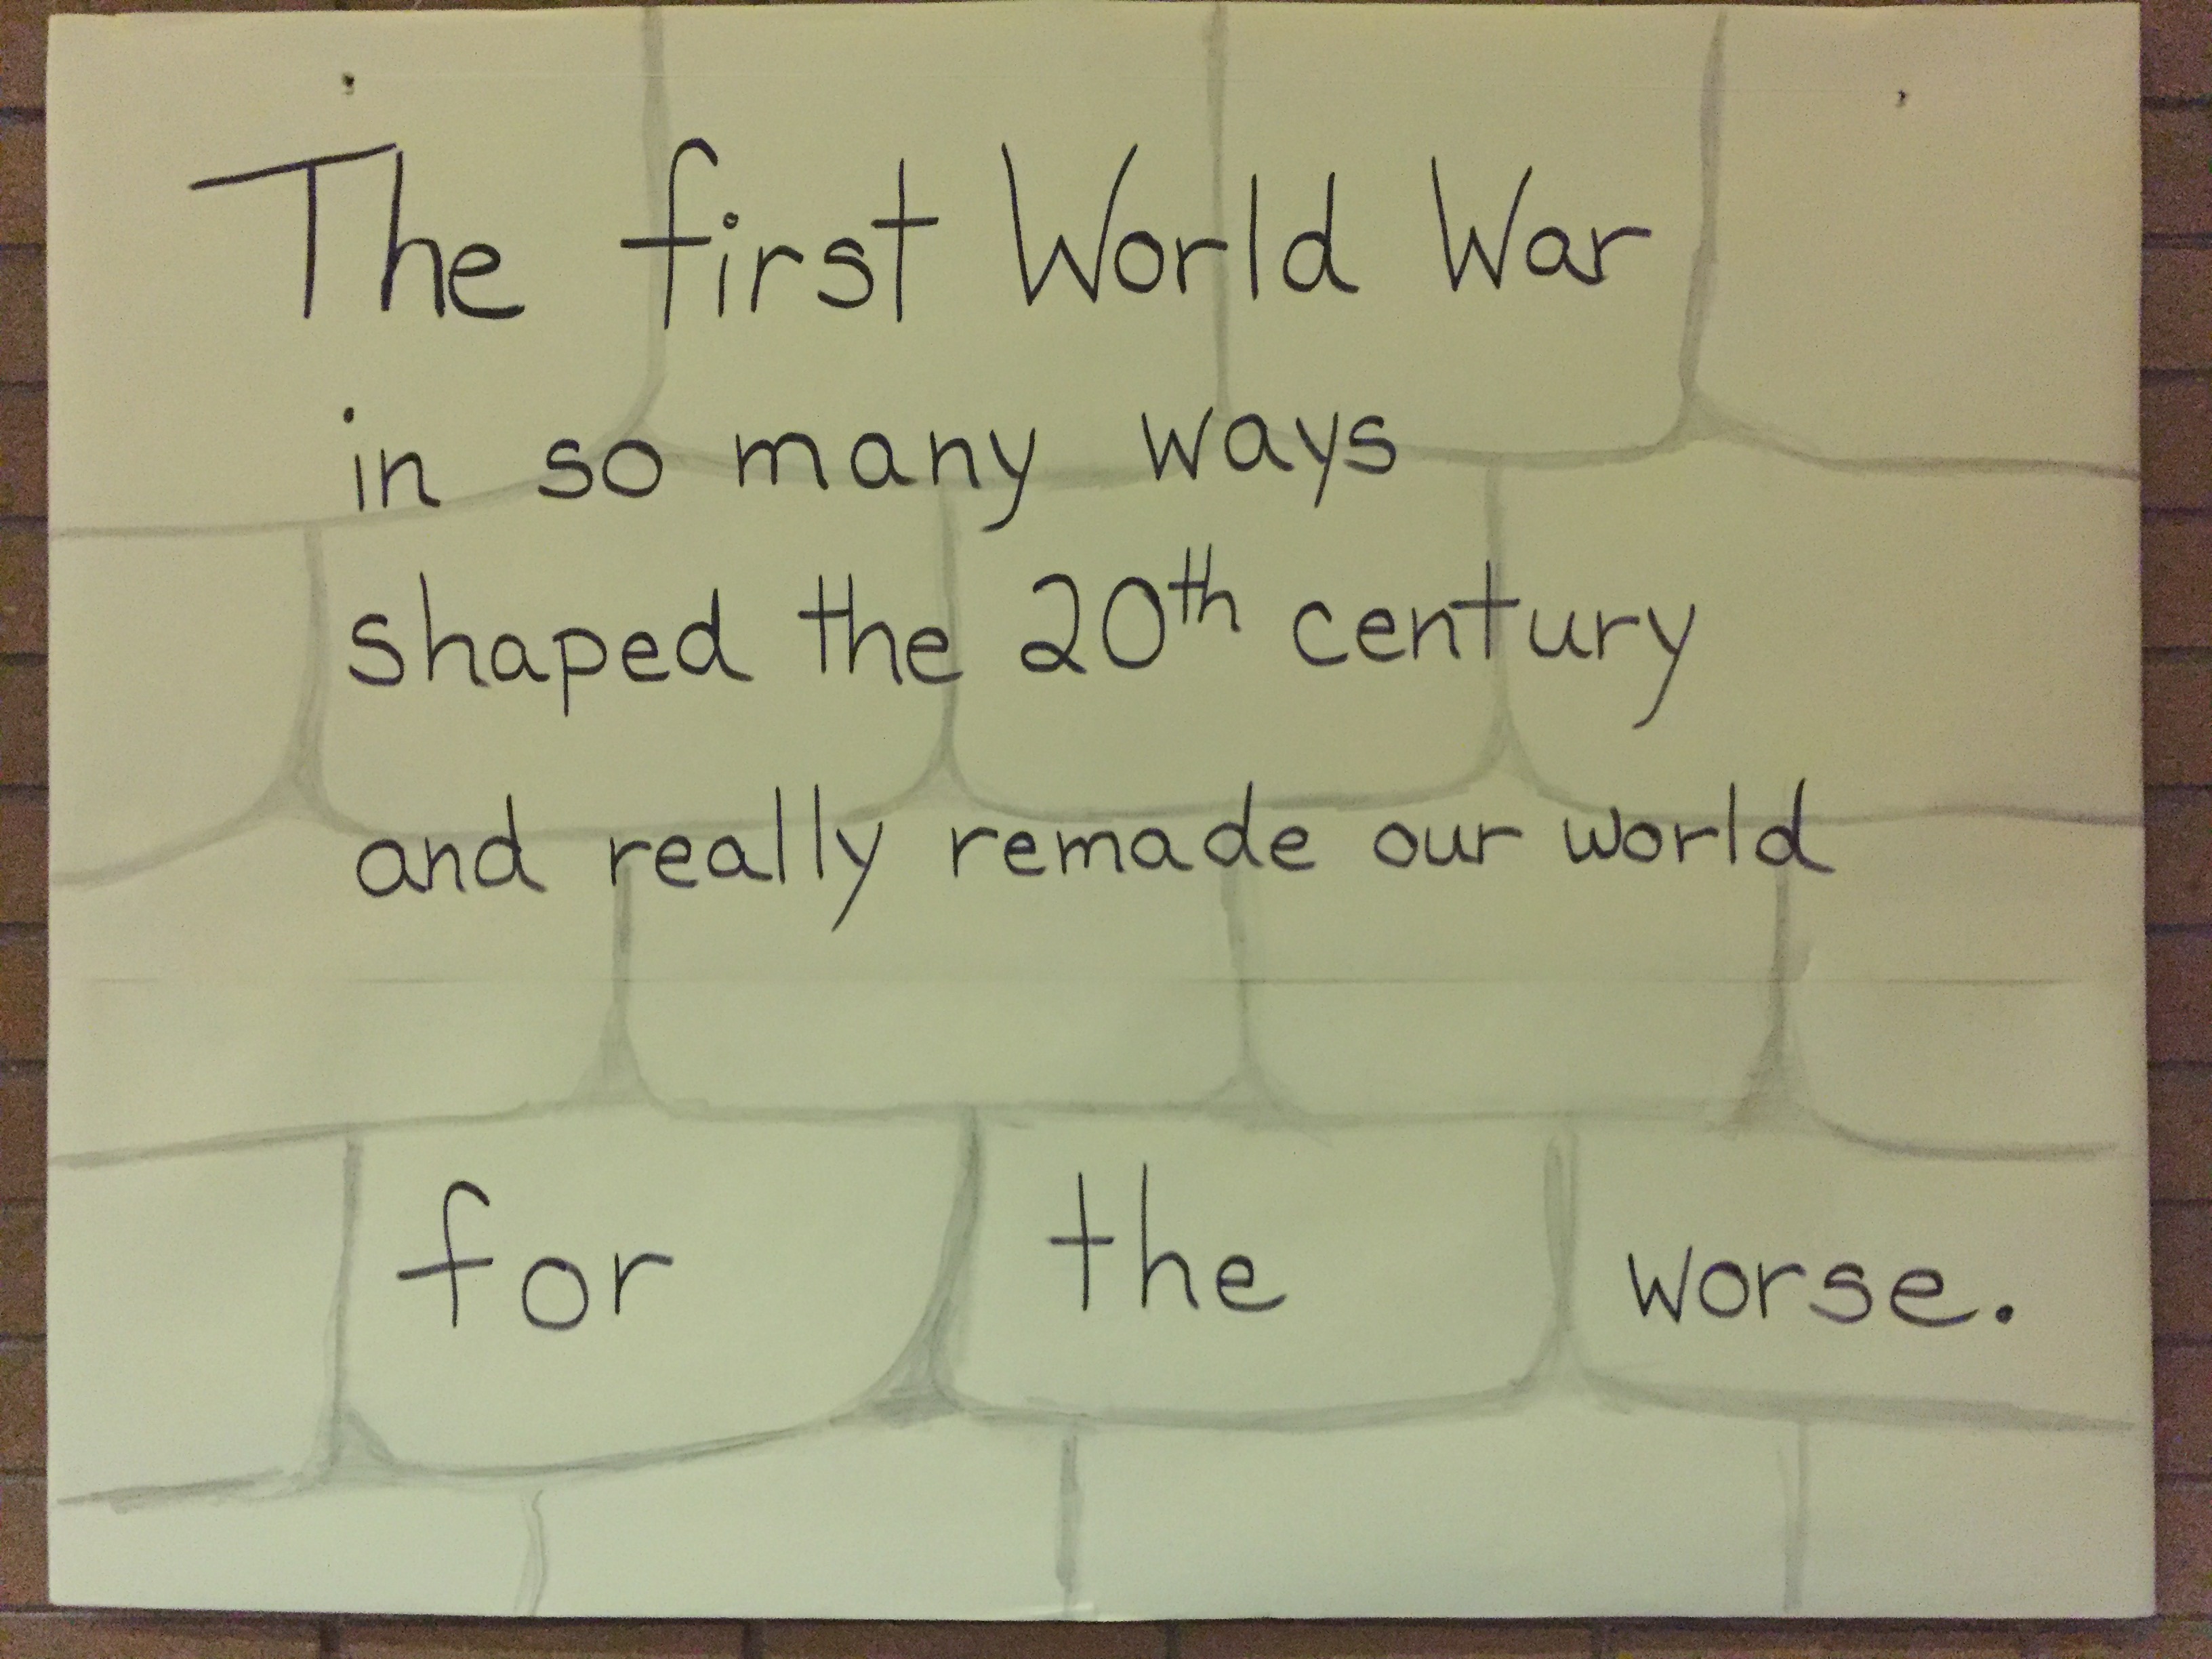 The first World War
in so many ways
shaped the 20th century
and really remade our world
for the worse.